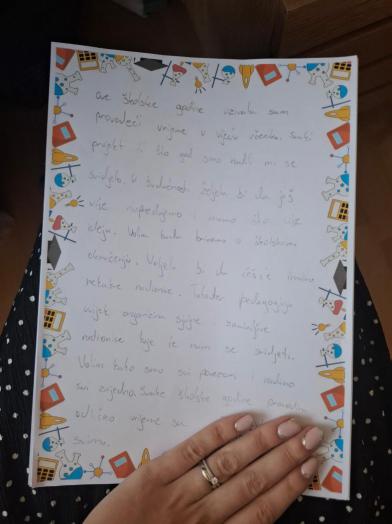 Ove školske godine uživala sam
provodeći vrijeme u vijeću učenika. Svaki
projekt i što god smo radili mi se
svidjelo. U budućnosti željela bi da još
više napredujemo i imamo što više
ideja. Volim kako brinemo o školskom
okruženju. Voljela bi da češće imamo
nekakve radionice. Također pedagoginja
uvijek organizira zanimljive
radionice koje će nam se svidjeti.
Volim kako smo svi povezani i radimo
svi zajedno. Svake školske godine provodim
odlično vrijeme sa
svima.